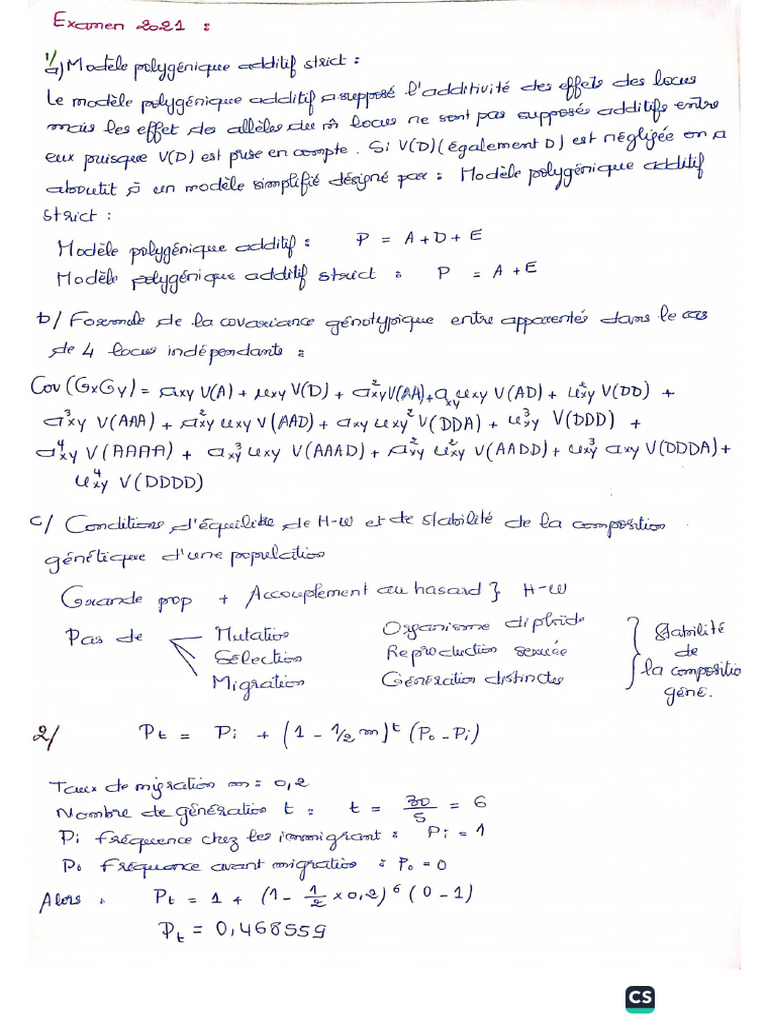 Examen 2021 :
1/
a) Modèle polygénique additif strict :
Le modèle polygénique additif a supposé l'additivité des effets des locus
mais les effet de allèles du m̂ locus ne sont pas supposés additifs entre
eux puisque V(D) est prise en compte. Si V(D) (également D) est négligée on a
aboutit à un modèle simplifié désigné par : Modèle polygénique additif
strict :
Modèle polygénique additif : P = A + D + E
Modèle polygénique additif strict : P = A + E
b/ Formule de la covariance génotypique entre apparentés dans le cas
de 4 locus indépendants :
Cov (GxGy) = axy V(A) + uxy V(D) + a²xy V(AA) + axy uxy V(AD) + u²xy V(DD) +
a³xy V(AAA) + a²xy uxy V(AAD) + axy uxy² V(DDA) + u³xy V(DDD) +
a⁴xy V(AAAA) + axy³ uxy V(AAAD) + a²xy u²xy V(AADD) + uxy³ axy V(DDDA) +
u⁴xy V(DDDD)
c/ Conditions d'équilibre de H-W et de stabilité de la composition
génétique d'une population
Grande pop + Accouplement au hasard } H-W
Pas de Mutation Organisme diploide } stabilité
Sélection Reproduction sexuée de
Migration Génération distinctes la compositio
géné.
2/ Pt = Pi + (1 - 1/2 m)^t (Po - Pi)
Taux de migration m = 0,2
Nombre de génération t : t = 30/5 = 6
Pi fréquence chez les immigrant : Pi = 1
Po fréquance avant migration : Po = 0
Alors : Pt = 1 + (1 - 1/2 x 0,2)⁶ (0 - 1)
Pt = 0,468559
CS